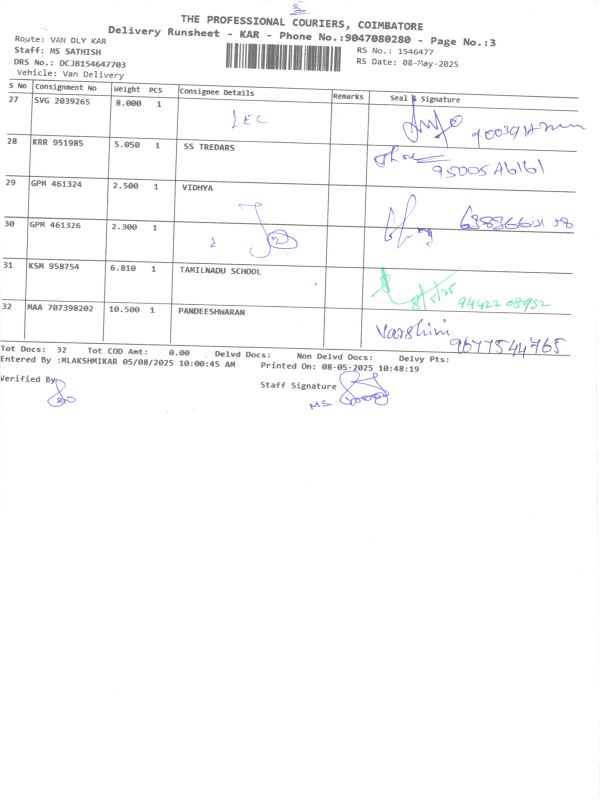 THE PROFESSIONAL COURIERS, COIMBATORE
Delivery Runsheet - KAR - Phone No.:9047080280 - Page No.:3
Route: VAN DLY KAR
RS No.: 1546477
Staff: MS SATHISH
RS Date: 08-May-2025
DRS No.: DCJB154647703
Vehicle: Van Delivery
S No Consignment No Weight PCS Consignee Details Remarks Seal & Signature
27 SVG 2039265 8.000 1
IEC
28 KRR 951985 5.050 1 SS TREDARS
29 GPM 461324 2.500 1 VIDHYA
30 GPM 461326 2.300 1
31 KSM 958754 6.810 1 TAMILNADU SCHOOL
8/5/25 9442208952
32 MAA 707398202 10.500 1 PANDEESHWARAN
Varshini
9677544765
Tot Docs: 32 Tot COD Amt: 0.00 Delvd Docs: Non Delvd Docs: Delvy Pts:
Entered By :MLAKSHMIKAR 05/08/2025 10:00:45 AM Printed On: 08-05-2025 10:48:19
Verified By
Staff Signature
MS